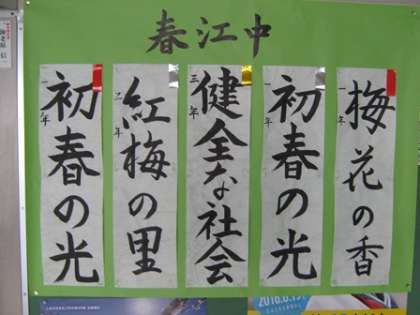 春江中
梅花の香
一年
初春の光
一年
健全な社会
三年
紅梅の里
二年
初春の光
一年